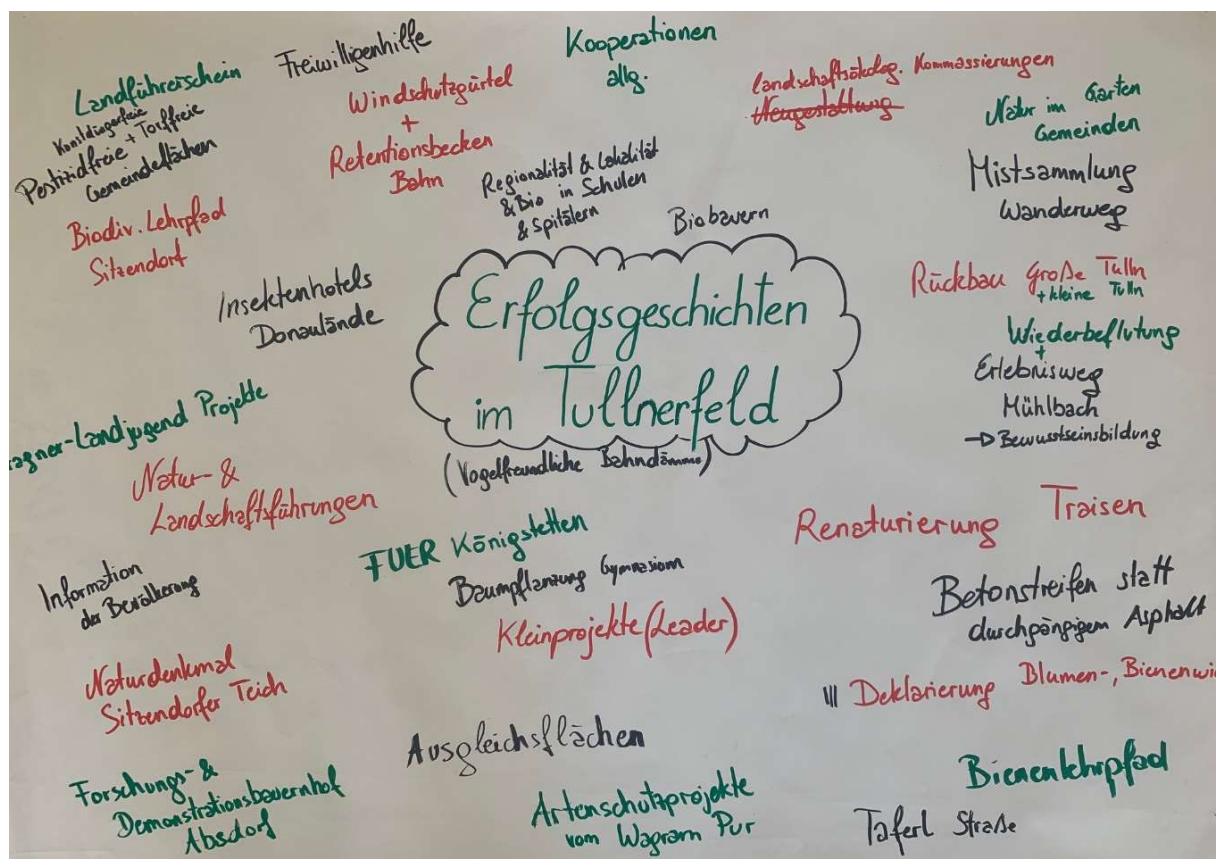 Landführerschein
Kunstdüngerfreie
Pestizidfreie + Torffreie
Gemeindeflächen
Biodiv. Lehrpfad
Sitzendorf
Freiwilligenhilfe
Windschutzgürtel
+
Retentionsbecken
Bahn
Kooperationen
allg.
Regionalität & Lokalität
& Bio in Schulen
& Spitälern
Biobauern
landschaftsökolog. Kommassierungen
Neugestaltung
Natur im Garten
Gemeinden
Mistsammlung
Wanderweg
Insektenhotels
Donaulände
Erfolgsgeschichten
im Tullnerfeld
(Vogelfreundliche Bahndämme)
Rückbau Große Tulln
+ kleine Tulln
Wiederbeflutung
+
Erlebnisweg
Mühlbach
→ Bewusstseinsbildung
agner-Landjugend Projekte
Natur- &
Landschaftsführungen
Information
der Bevölkerung
Naturdenkmal
Sitzendorfer Teich
Forschungs- &
Demonstrationsbauernhof
Absdorf
FUER Königstetten
Baumpflanzung Gymnasium
Kleinprojekte (Leader)
Ausgleichsflächen
Artenschutzprojekte
vom Wagram Pur
Renaturierung Traisen
Betonstreifen statt
durchgängigem Asphalt
Deklarierung Blumen-, Bienenwi
Bienenlehrpfad
Taferl Straße